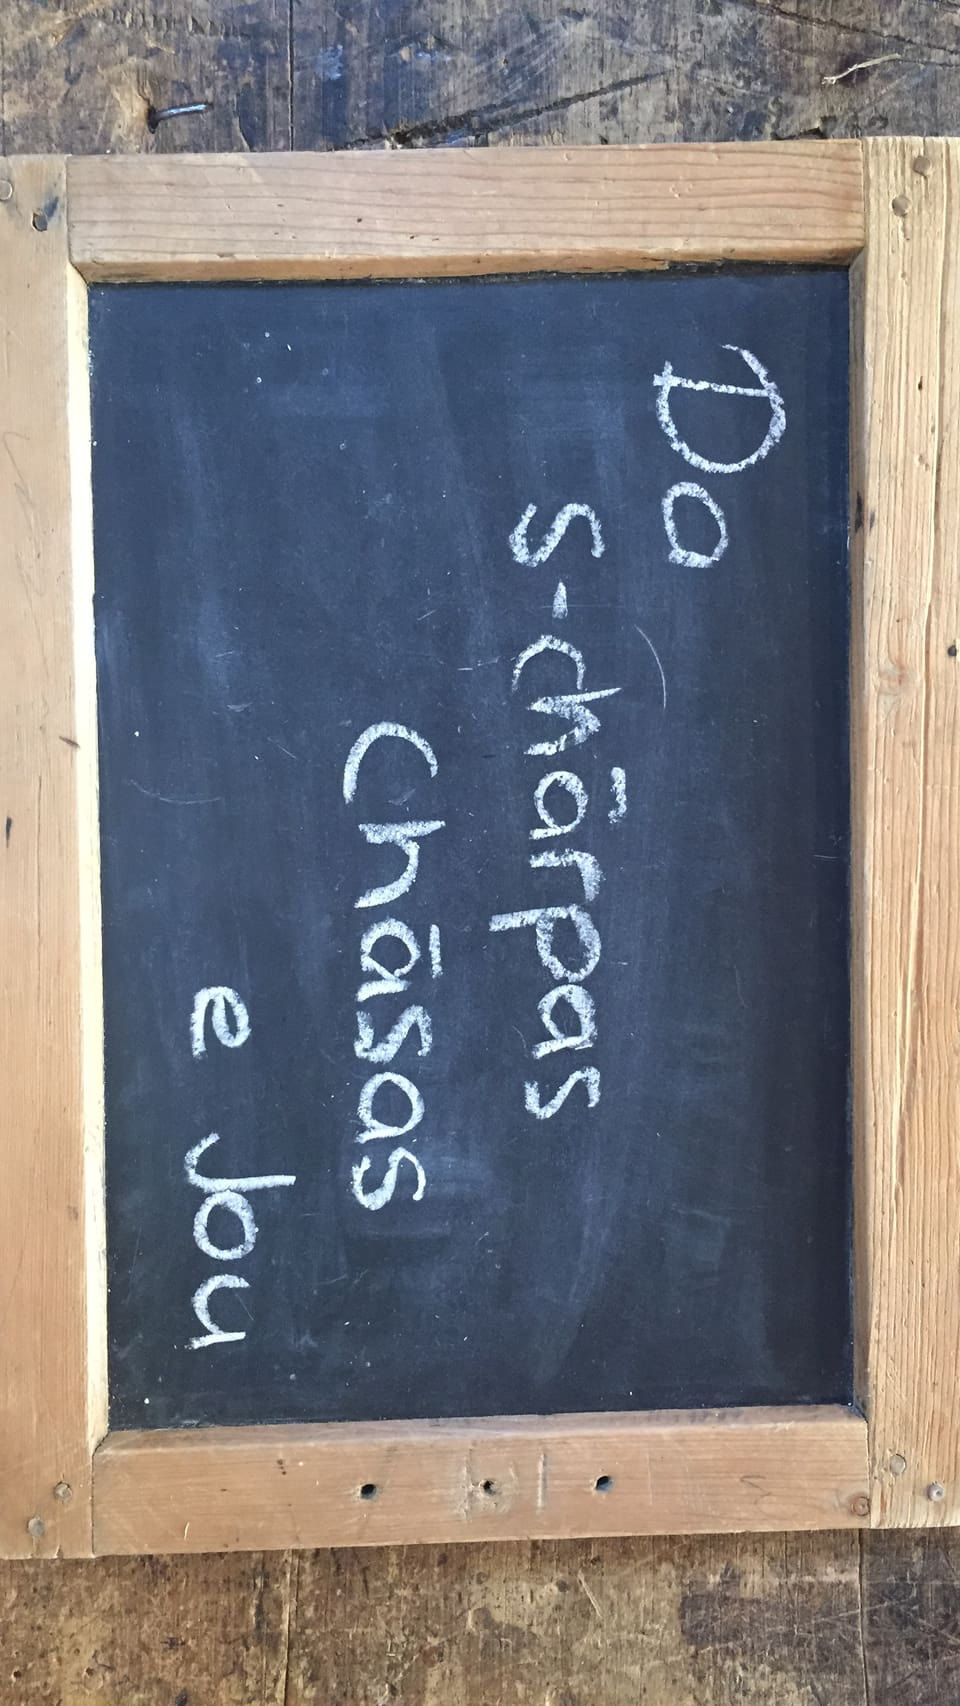 Da
s-chārpas
Chāsas
e Jou